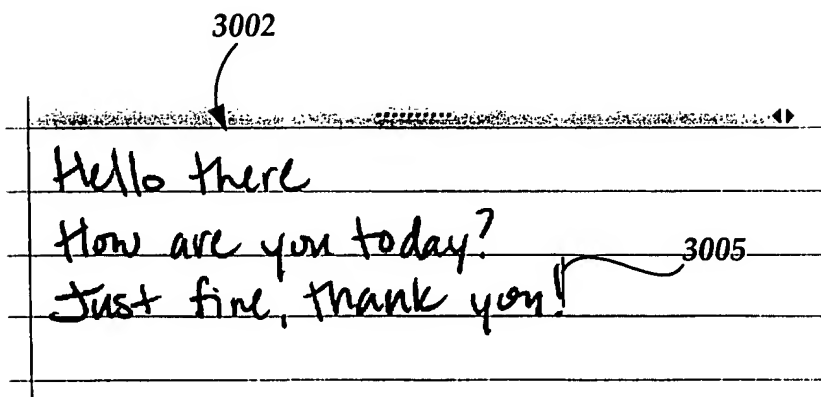 3002
Hello there
How are you today?
3005
Just fine, thank you!